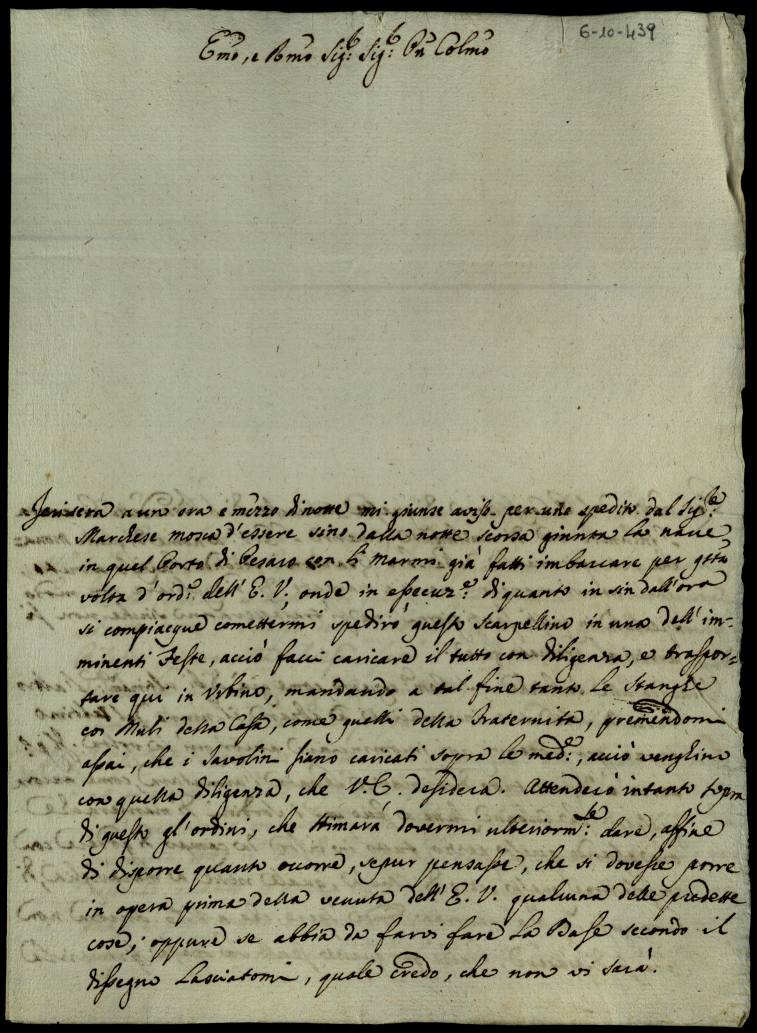 6-10-439
Emo, e Rmo Sig.r Sig.r Pñ Colmo
Jerisera a un ora e mezzo di notte mi giunse aviso per uno spedito dal Sig.re
Marchese Mosca d'essere sino dalla notte scorsa giunta la nave
in quel Porto di Pesaro con li Marmi già fatti imbarcare per qsta
volta d'ord.e dell'E. V.; onde in essecuz.e di quanto in sin dall'ora
si compiacque comettermi spedirò questo Scarpellino in una dell'im-
minenti Feste, acciò facci caricare il tutto con diligenza, e traspor-
tare qui in Urbino, mandando a tal fine tanto le Stangle
coi Muli della Casa, come quelli della Fraternita, premendomi
assai, che i Tavolini siano caricati sopra le med.e, acciò venghino
con quella diligenza, che V. E. desidera. Attenderò intanto sopra
di questo gl'ordini, che stimarà dovermi ulteriorm.te dare, affine
di disporre quanto ocorre, sepur pensasse, che si dovesse porre
in opera prima della venuta dell'E. V. qualcuna delle predette
cose; oppure se abbia da farvi fare la Base secondo il
dissegno lasciatomi, quale credo, che non vi sarà.